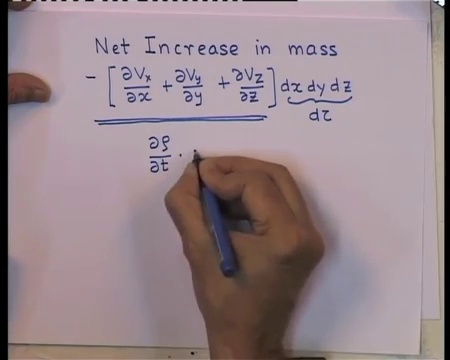 Net Increase in mass
- [ ∂Vx/∂x + ∂Vy/∂y + ∂Vz/∂z ] dx dy dz
dτ
∂ρ/∂t ·